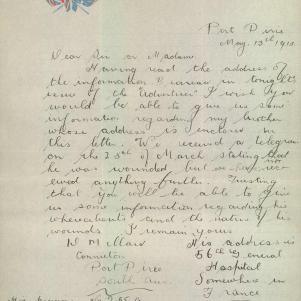 Port Pirie
May. 13th 191
Dear Sir or Madam
Having read the address of
the information Bureau in tonight's
issue of the Volunteer I wish you
would be able to give us some
information regarding my brother
whose address is enclosed in
this letter. We received a telegram
on the 25th of March stating that
he was wounded but we have not rec-
eived anything further. Trusting
that you will be able to give
us some information regarding his
whereabouts and the nature of his
wounds I remain yours
His address is
56th General
Port Pirie Hospital
South Aus. Somewhere in
France